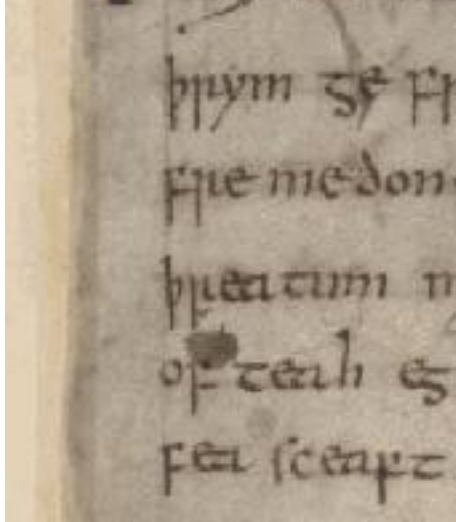 þrym ge fr
fre medon
þreatum m
of teah eg
fea sceaft